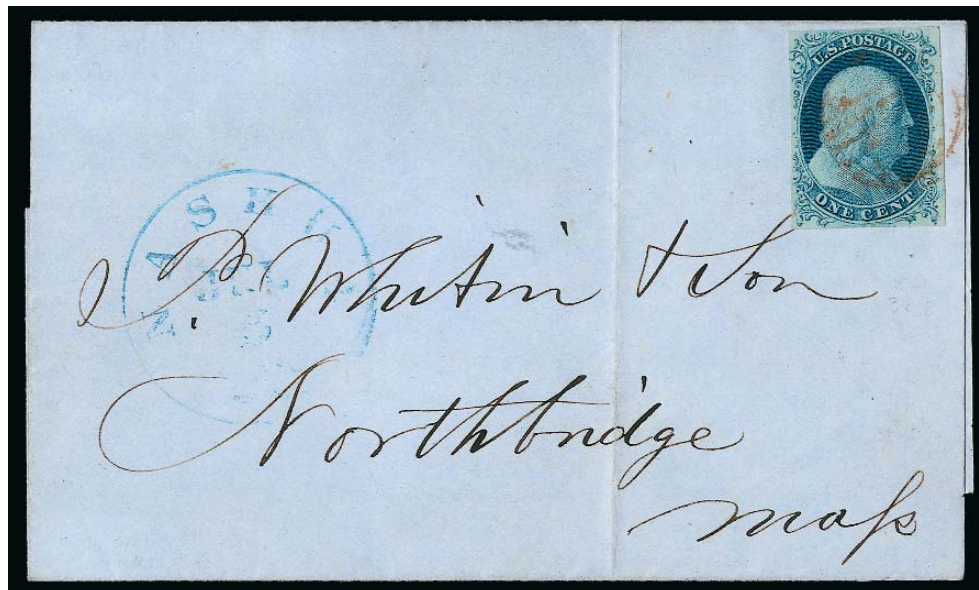 U.S. POSTAGE
ONE CENT
NASHUA
JUL
5
P. Whitin & Son
Northbridge
Mass